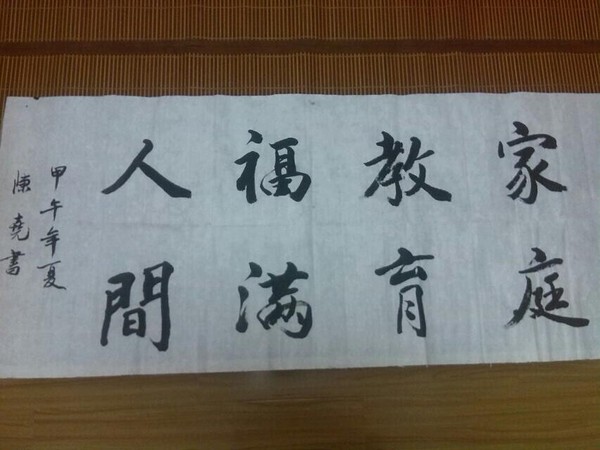 家庭
教育
福满
人間
甲午年夏
陳堯書